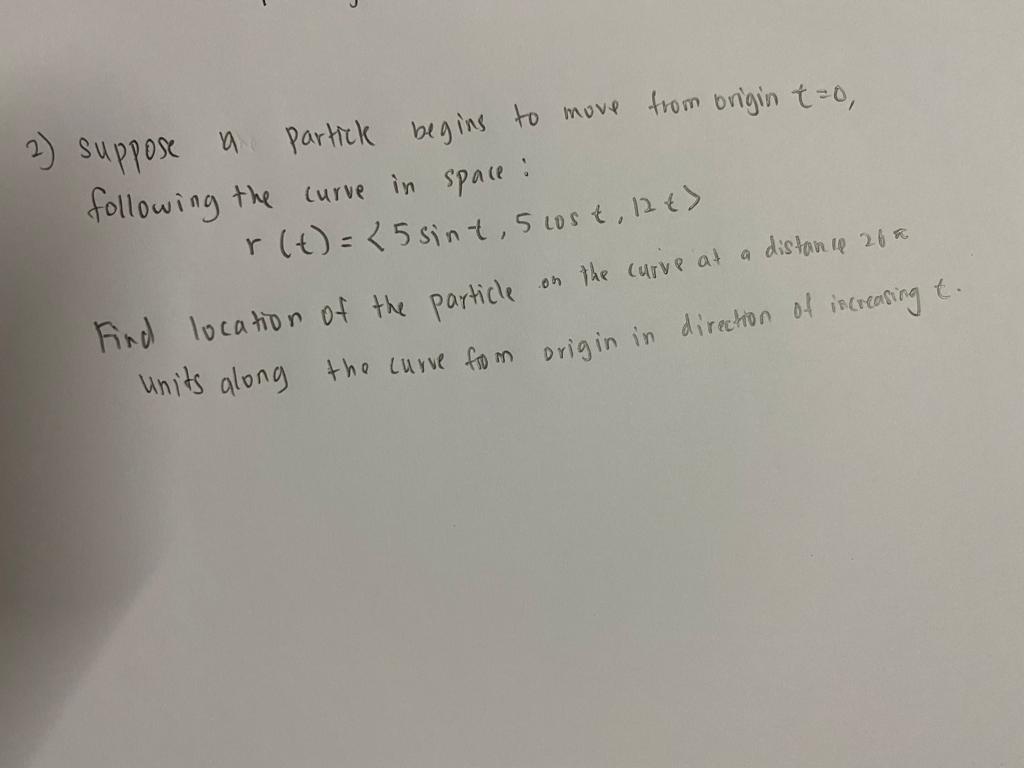 2) suppose a particle begins to move from origin t=0,
following the curve in space :
r (t) = < 5 sin t , 5 cos t , 12 t >
Find location of the particle on the curve at a distance 26 π
units along the curve from origin in direction of increasing t.